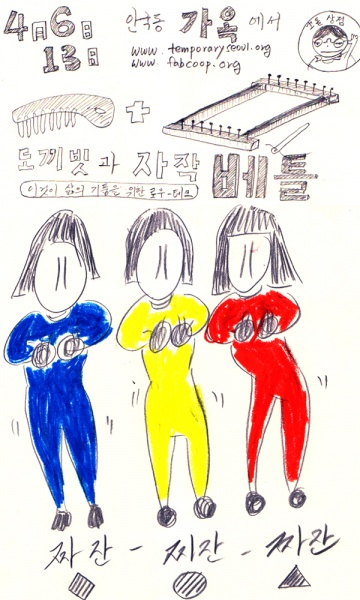 4月6日
13日
안국동 가옥 에서
www.temporaryseoul.org
www.fabcoop.org
상점
도끼빗 과 자작 베틀
이것이 삶의 기품을 위한 로우-테크
짜잔 - 찌잔 - 짜잔